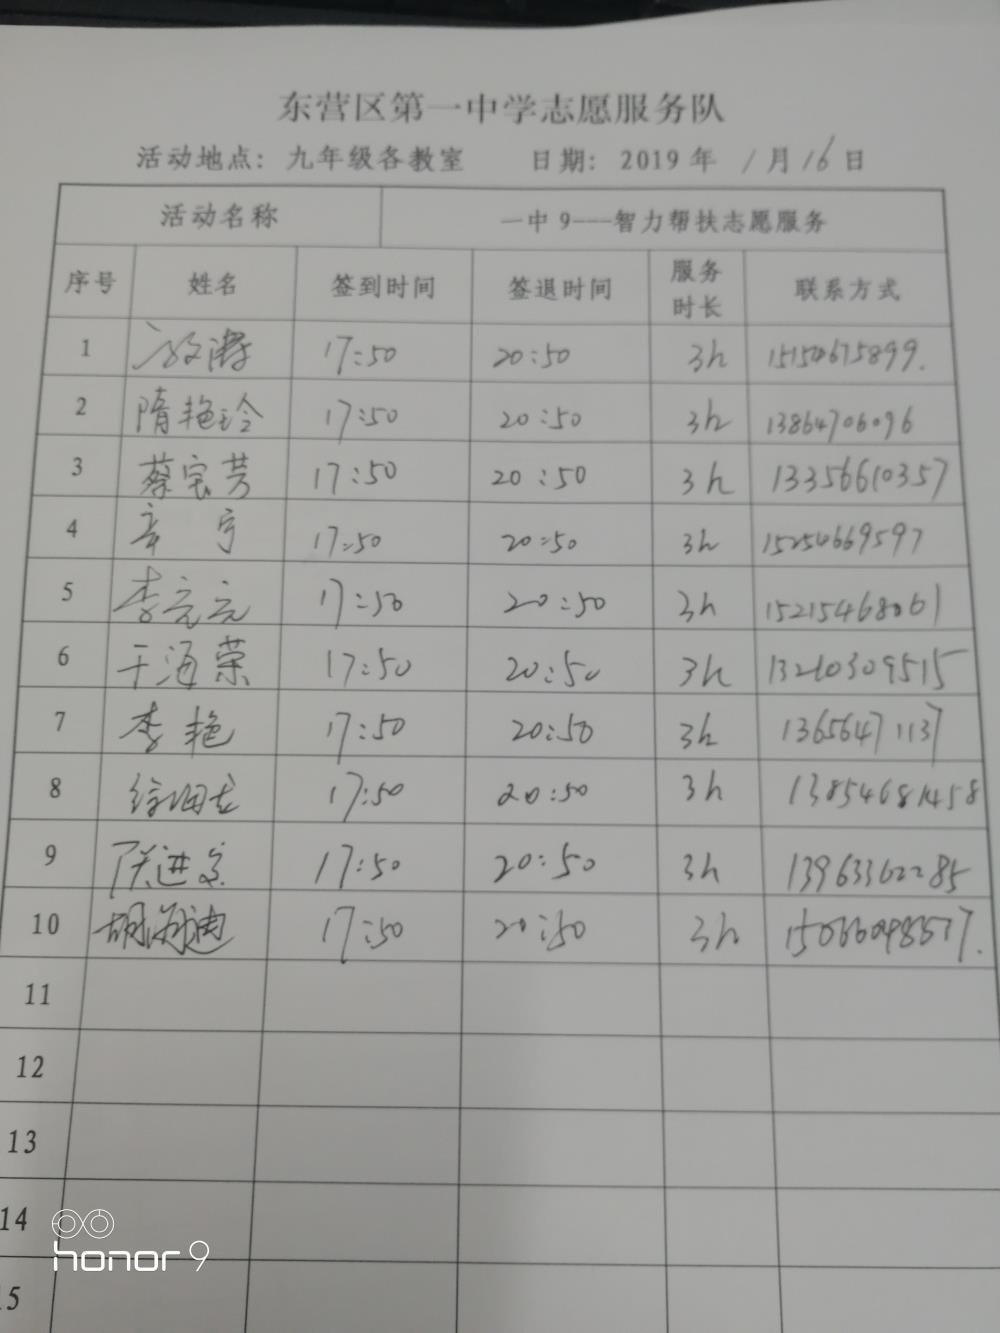 东营区第一中学志愿服务队
活动地点：九年级各教室 日期：2019年 1月16日
活动名称 一中9---智力帮扶志愿服务
序号 姓名 签到时间 签退时间 服务时长 联系方式
1 17:50 20:50 3h
2 隋艳玲 17:50 20:50 3h 13864706096
3 蔡宝芳 17:50 20:50 3h 13356610357
4 辛宁 17:50 20:50 3h 15254669597
5 李元元 17:50 20:50 3h 15215468061
6 于海荣 17:50 20:50 3h 13210309515
7 李艳 17:50 20:50 3h 13656471137
8 17:50 20:50 3h 13854681458
9 17:50 20:50 3h 13963362285
10 17:50 20:50 3h
11
12
13
14
15
honor 9